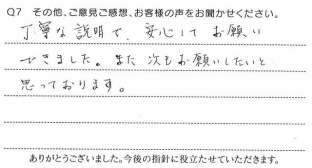 Q7 その他、ご意見ご感想、お客様の声をお聞かせください。
丁寧な説明で、安心して お願い
できました。また 次もお願いしたいと
思っております。
ありがとうございました。今後の指針に役立たせていただきます。